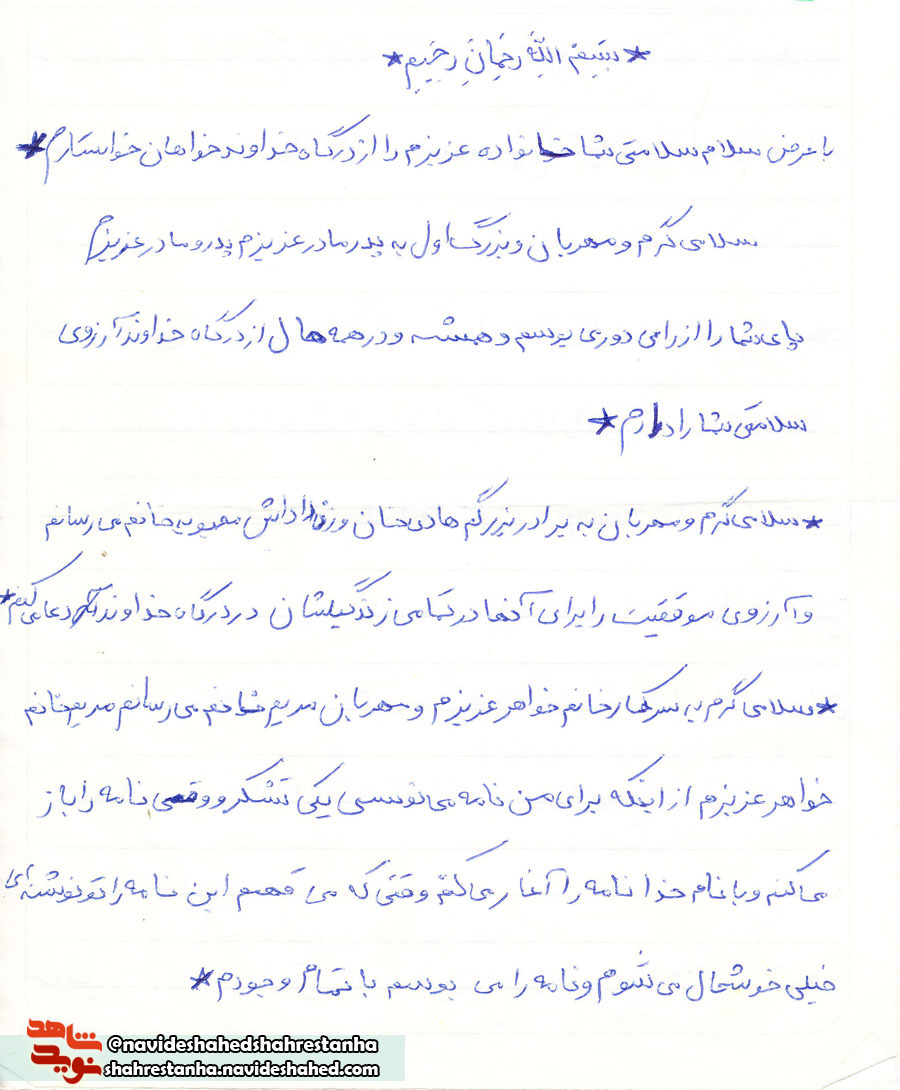 * بسم الله رحمان رحیم *
با عرض سلام سلامتی شما خانواده عزیزم را از درگاه خداوند خواهان خواستارم *
سلامی گرم و مهربان و بزرگ اول به پدر مادر عزیزم پدر و مادر عزیزم
پای شما را از راهی دوری بوسم و همشه و در همه هال از درگاه خداوند آرزوی
سلامتی شما را دارم *
* سلامی گرم و مهربان به برادر بزرگم هادی جان و زن داداش محبوبه خانم می رسانم
و آرزوی موفقیت را برای آنها در تمامی زندگیشان در درگاه خداوند دعا می کنم *
* سلامی گرم به سرکار خانم خواهر عزیزم و مهربان مریم خانم می رسانم مریم خانم
خواهر عزیزم از اینکه برای من نامه می نویسی یکی تشکر و وقتی نامه را باز
می کنم و با نام خدا نامه را آغاز می کنم وقتی که می فهمم این نامه را تو نوشته ای
خیلی خوشحال می شوم و نامه را می بوسم با تمام وجودم *
شاهد
نوید
@navideshahedshahrestanha
shahrestanha.navideshahed.com